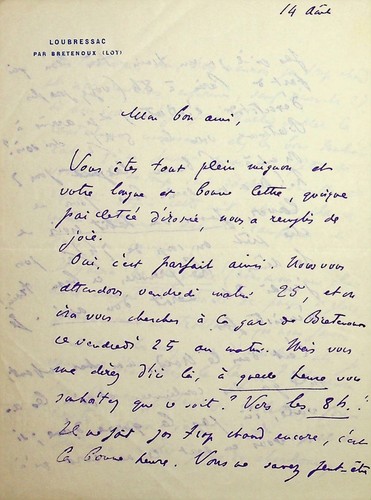 14 Août
LOUBRESSAC
PAR BRETENOUX (LOT)
Mon bon ami,
Vous êtes tout plein mignon et
votre longue et bonne lettre, quoique
d'ironie, nous a remplis de
joie.
Oui, c'est parfait ainsi. Nous vous
attendons vendredi matin 25, et on
ira vous chercher à la gare de Bretenoux
ce vendredi 25 au matin. Mais vous
me direz d'ici là, à quelle heure vous
souhaitez que ce soit ? Vers les 8h.
Il ne fait pas trop chaud encore, c'est
la bonne heure. Vous ne savez peut-être